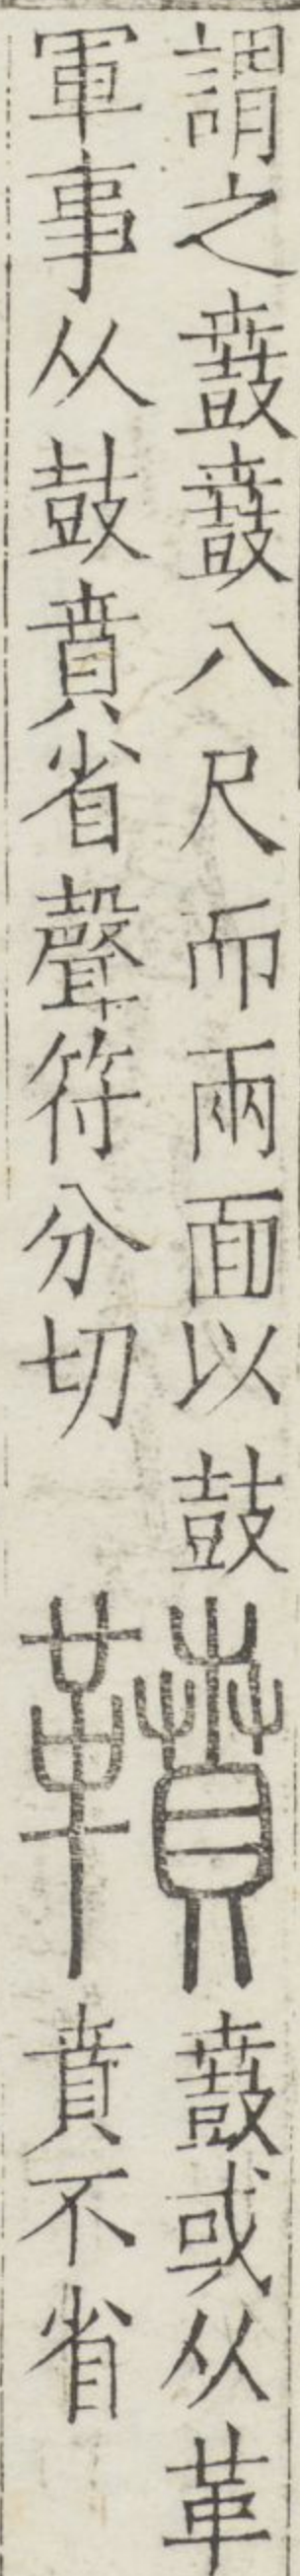 謂之鼖鼖八尺而兩面以鼓
軍事从鼓賁省聲符分切
鼖或从革
賁不省